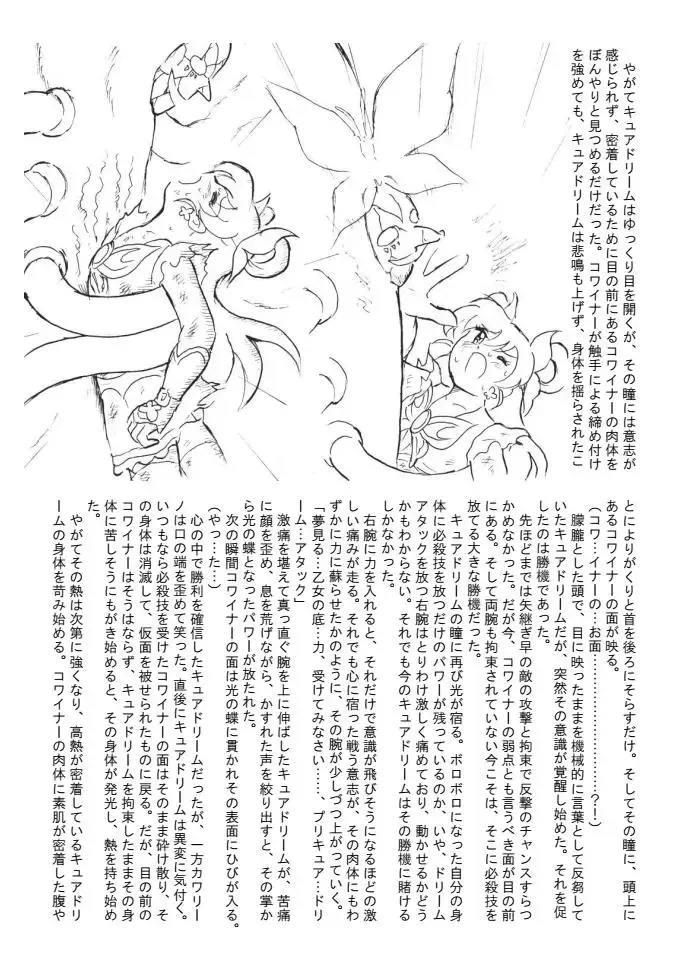 やがてキュアドリームはゆっくり目を開くが、その瞳には意志が
感じられず、密着しているために目の前にあるコワイナーの肉体を
ぼんやりと見つめるだけだった。コワイナーが触手による締め付け
を強めても、キュアドリームは悲鳴も上げず、身体を揺らされたこ
とによりがくりと首を後ろにそらすだけ。そしてその瞳に、頭上に
あるコワイナーの面が映る。
（コワ…イナーの…お面………………………？！）
　朦朧とした頭で、目に映ったままを機械的に言葉として反芻して
いたキュアドリームだが、突然その意識が覚醒し始めた。それを促
したのは勝機であった。
　先ほどまでは矢継ぎ早の敵の攻撃と拘束で反撃のチャンスすらつ
かめなかった。だが今、コワイナーの弱点とも言うべき面が目の前
にある。そして両腕も拘束されていない今こそは、そこに必殺技を
放てる大きな勝機だった。
　キュアドリームの瞳に再び光が宿る。ボロボロになった自分の身
体に必殺技を放つだけのパワーが残っているのか、いや、ドリーム
アタックを放つ右腕はとりわけ激しく痛めており、動かせるかどう
かもわからない。それでも今のキュアドリームはその勝機に賭ける
しかなかった。
　右腕に力を入れると、それだけで意識が飛びそうになるほどの激
しい痛みが走る。それでも心に宿った戦う意志が、その肉体にもわ
ずかに力に蘇らせたかのように、その腕が少しづつ上がっていく。
「夢見る…乙女の底…力、受けてみなさい……、プリキュア…ドリ
ーム…アタック」
　激痛を堪えて真っ直ぐ腕を上に伸ばしたキュアドリームが、苦痛
に顔を歪め、息を荒げながら、かすれた声を絞り出すと、その掌か
ら光の蝶となったパワーが放たれた。
　次の瞬間コワイナーの面は光の蝶に貫かれその表面にひびが入る。
（やっ…た…）
　心の中で勝利を確信したキュアドリームだったが、一方カワリー
ノは口の端を歪めて笑った。直後にキュアドリームは異変に気付く。
いつもなら必殺技を受けたコワイナーの面はそのまま砕け散り、そ
の身体は消滅して、仮面を被せられたものに戻る。だが、目の前の
コワイナーはそうはならず、キュアドリームを拘束したままその身
体に苦しそうにもがき始めると、その身体が発光し、熱を持ち始め
た。
　やがてその熱は次第に強くなり、高熱が密着しているキュアドリ
ームの身体を苛み始める。コワイナーの肉体に素肌が密着した腹や